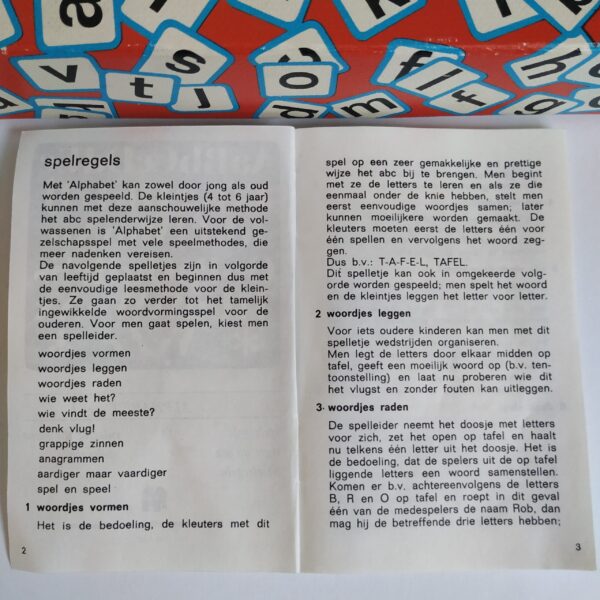 a
v
t
s
t
J
o
c
d
m
f
f
f
k
g
h
spelregels
Met 'Alphabet' kan zowel door jong als oud
worden gespeeld. De kleintjes (4 tot 6 jaar)
kunnen met deze aanschouwelijke methode
het abc spelenderwijze leren. Voor de vol-
wassenen is 'Alphabet' een uitstekend ge-
zelschapsspel met vele speelmethodes, die
meer nadenken vereisen.
De navolgende spelletjes zijn in volgorde
van leeftijd geplaatst en beginnen dus met
de eenvoudige leesmethode voor de klein-
tjes. Ze gaan zo verder tot het tamelijk
ingewikkelde woordvormingsspel voor de
ouderen. Voor men gaat spelen, kiest men
een spelleider.
woordjes vormen
woordjes leggen
woordjes raden
wie weet het?
wie vindt de meeste?
denk vlug!
grappige zinnen
anagrammen
aardiger maar vaardiger
spel en speel
1 woordjes vormen
Het is de bedoeling, de kleuters met dit
2
spel op een zeer gemakkelijke en prettige
wijze het abc bij te brengen. Men begint
met ze de letters te leren en als ze die
eenmaal onder de knie hebben, stelt men
eerst eenvoudige woordjes samen; later
kunnen moeilijkere worden gemaakt. De
kleuters moeten eerst de letters één voor
één spellen en vervolgens het woord zeg-
gen.
Dus b.v.: T-A-F-E-L, TAFEL.
Dit spelletje kan ook in omgekeerde volg-
orde worden gespeeld; men spelt het woord
en de kleintjes leggen het letter voor letter.
2 woordjes leggen
Voor iets oudere kinderen kan men met dit
spelletje wedstrijden organiseren.
Men legt de letters door elkaar midden op
tafel, geeft een moeilijk woord op (b.v. ten-
toonstelling) en laat nu proberen wie dit
het vlugst en zonder fouten kan uitleggen.
3 woordjes raden
De spelleider neemt het doosje met letters
voor zich, zet het open op tafel en haalt
nu telkens één letter uit het doosje. Het is
de bedoeling, dat de spelers uit de op tafel
liggende letters een woord samenstellen.
Komen er b.v. achtereenvolgens de letters
B, R en O op tafel en roept in dit geval
één van de medespelers de naam Rob, dan
mag hij de betreffende drie letters hebben;
3